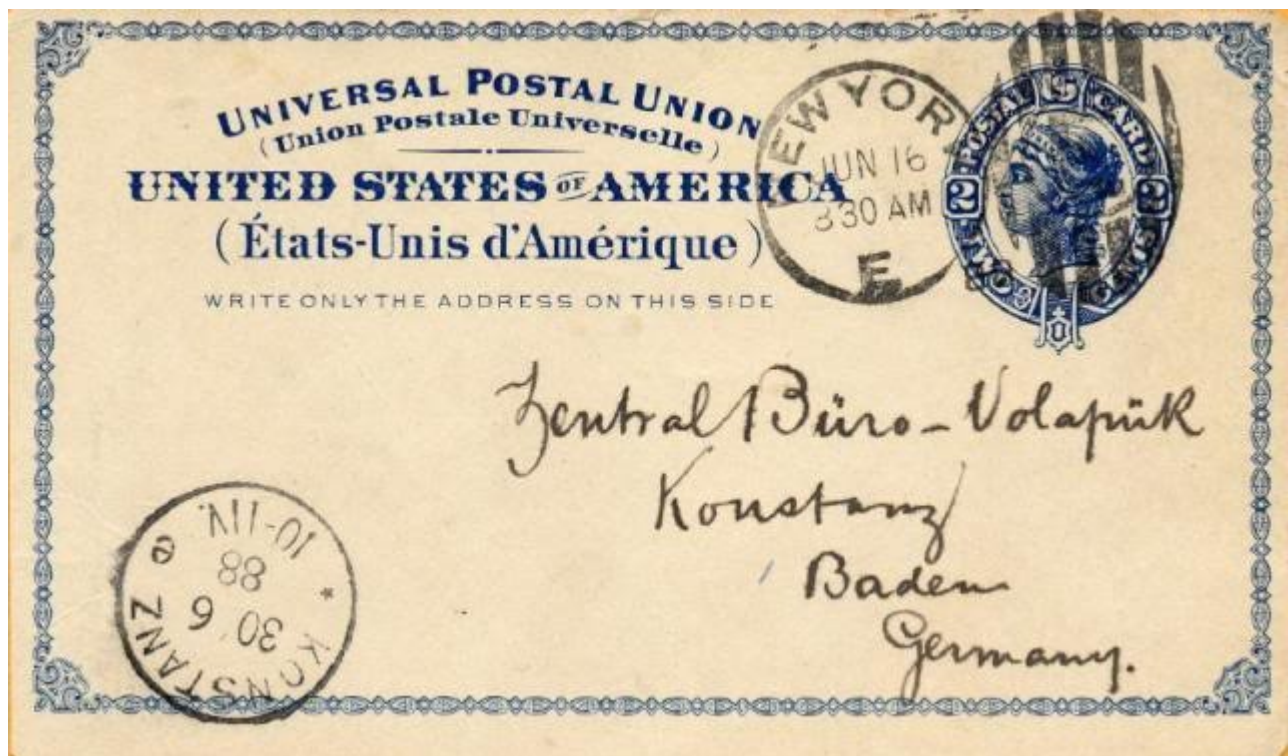 UNIVERSAL POSTAL UNION
(Union Postale Universelle)
UNITED STATES OF AMERICA
(États-Unis d'Amérique)
WRITE ONLY THE ADDRESS ON THIS SIDE
NEW YORK
JUN 16
830 AM
E
U.S. POSTAL CARD
2 2
Zentral Büro-Volapük
Konstanz
Baden
Germany.
KONSTANZ
30 6
88
10-11V.